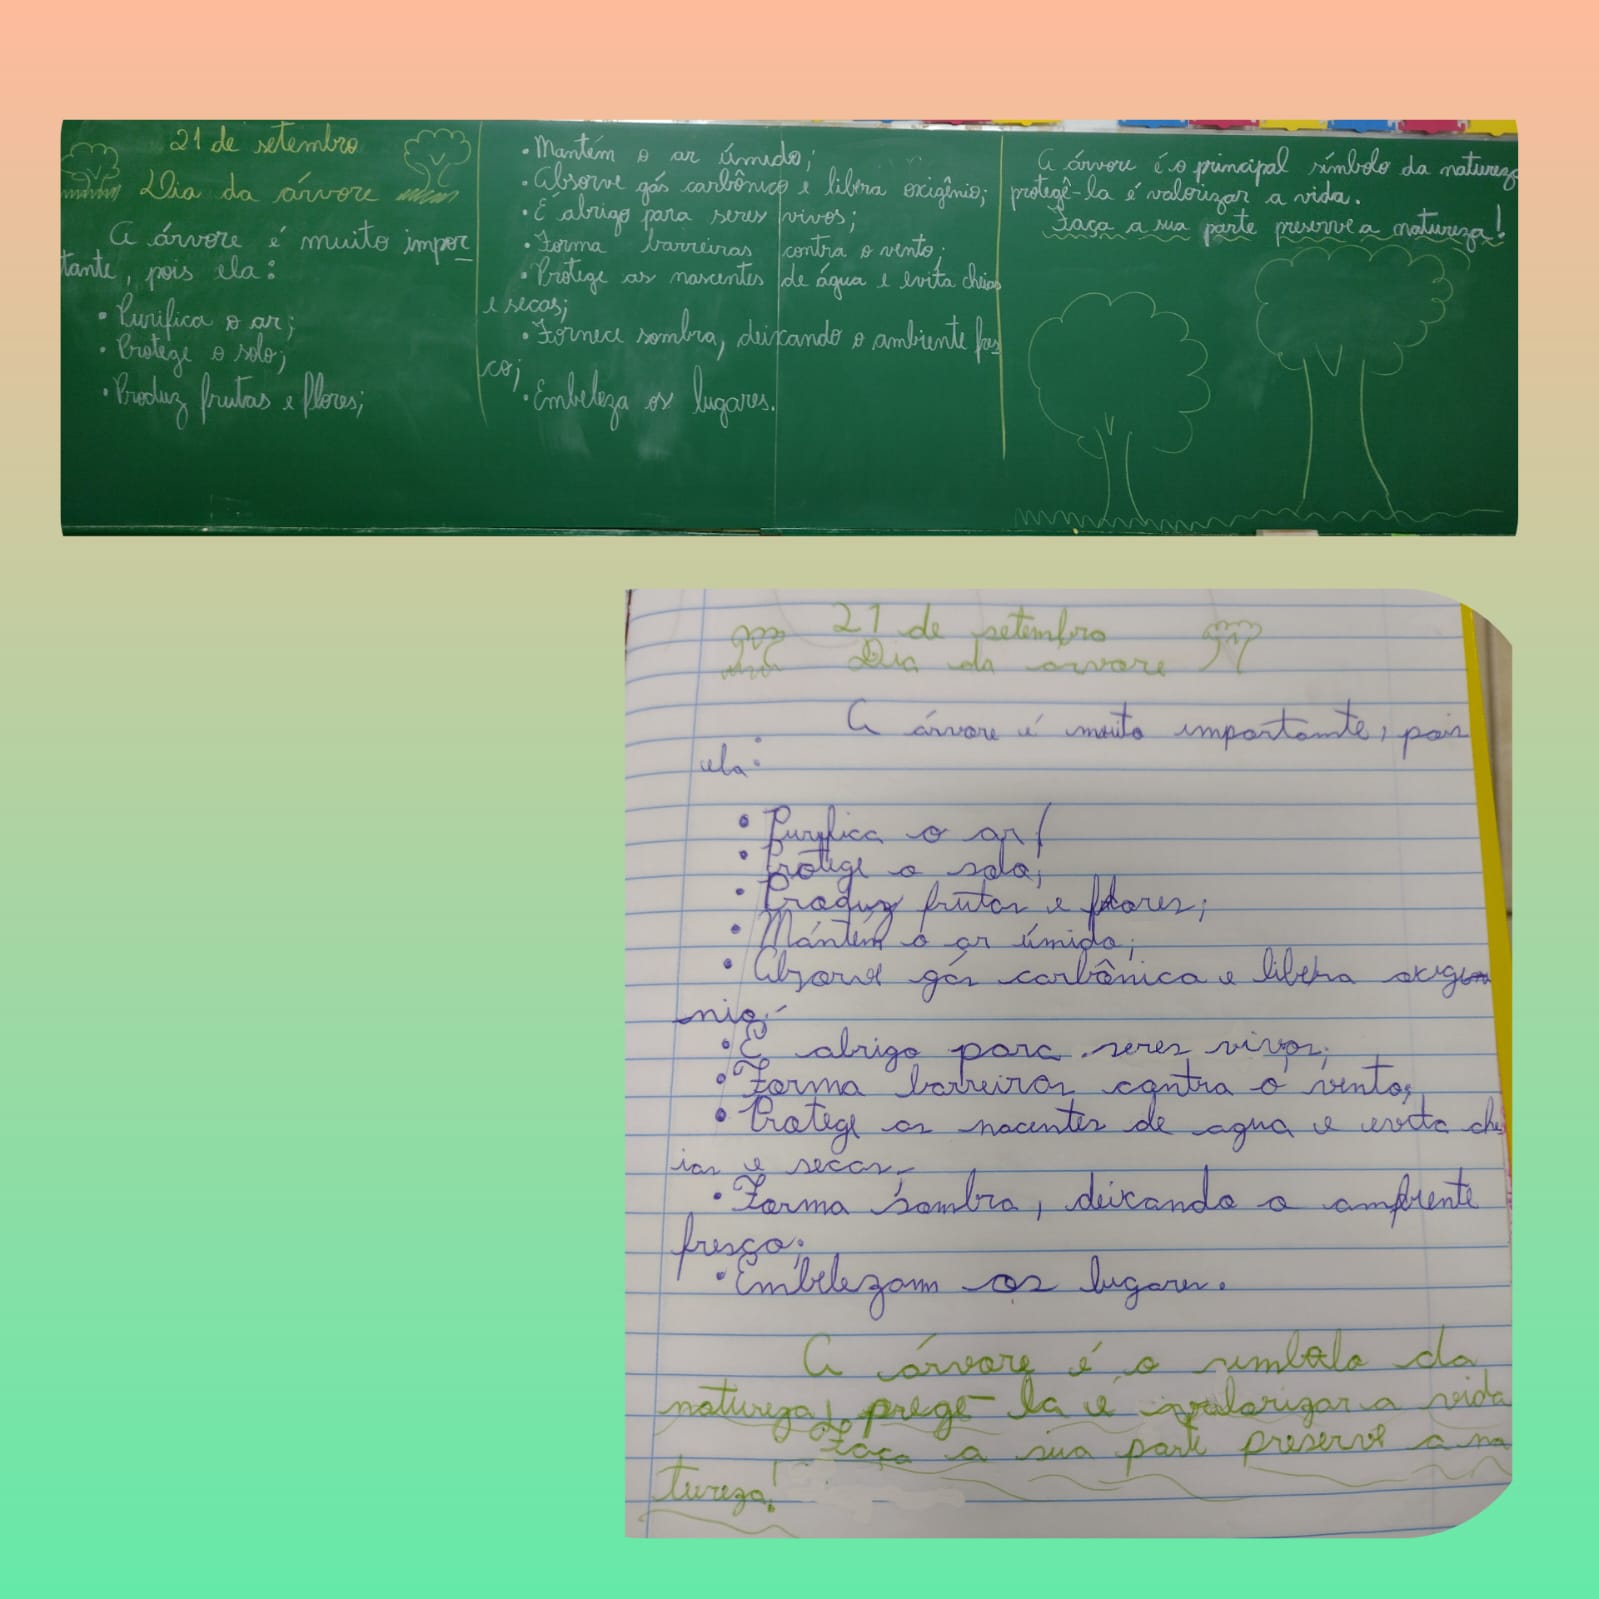 21 de setembro
Dia da árvore
A árvore é muito impor
tante, pois ela:
• Purifica o ar;
• Protege o solo;
• Produz frutas e flores;
• Mantém o ar úmido;
• Absorve gás carbônico e libera oxigênio;
• É abrigo para seres vivos;
• Forma barreiras contra o vento;
• Protege as nascentes de água e evita cheias
e secas;
• Fornece sombra, deixando o ambiente fres
co;
• Embeleza os lugares.
A árvore é o principal símbolo da natureza
protegê-la é valorizar a vida.
Faça a sua parte preserve a natureza!
21 de setembro
Dia da árvore
A árvore é muito importante, pois
ela:
• Purifica o ar
• Protege o solo;
• Produz frutas e flores;
• Mántém o ar úmido;
• Absorve gás carbônica e libera oxige
nio;
• É abrigo para seres vivos;
• Forma barreiras contra o vento;
• Protege as nacentes de agua e evita che
ias e secas;
• Forma sombra, deixando o
fresco;
• Embelezam os lugares.
A árvore é o da
natureza, pregê-la é valorizar a vida
Faça a sua parte preserve a na
tureza!